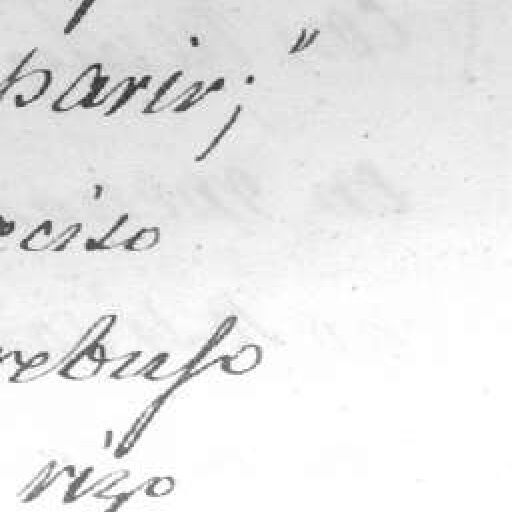 parir;"
eciso
rebufo
rizo